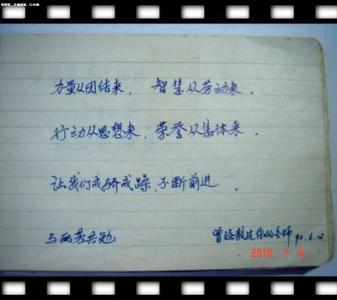 力量从团结来，智慧从劳动来，
行动从思想来，荣誉从集体来，
让我们戒骄戒躁，不断前进。
与丽芳共勉
曾经教过你的老师
2010